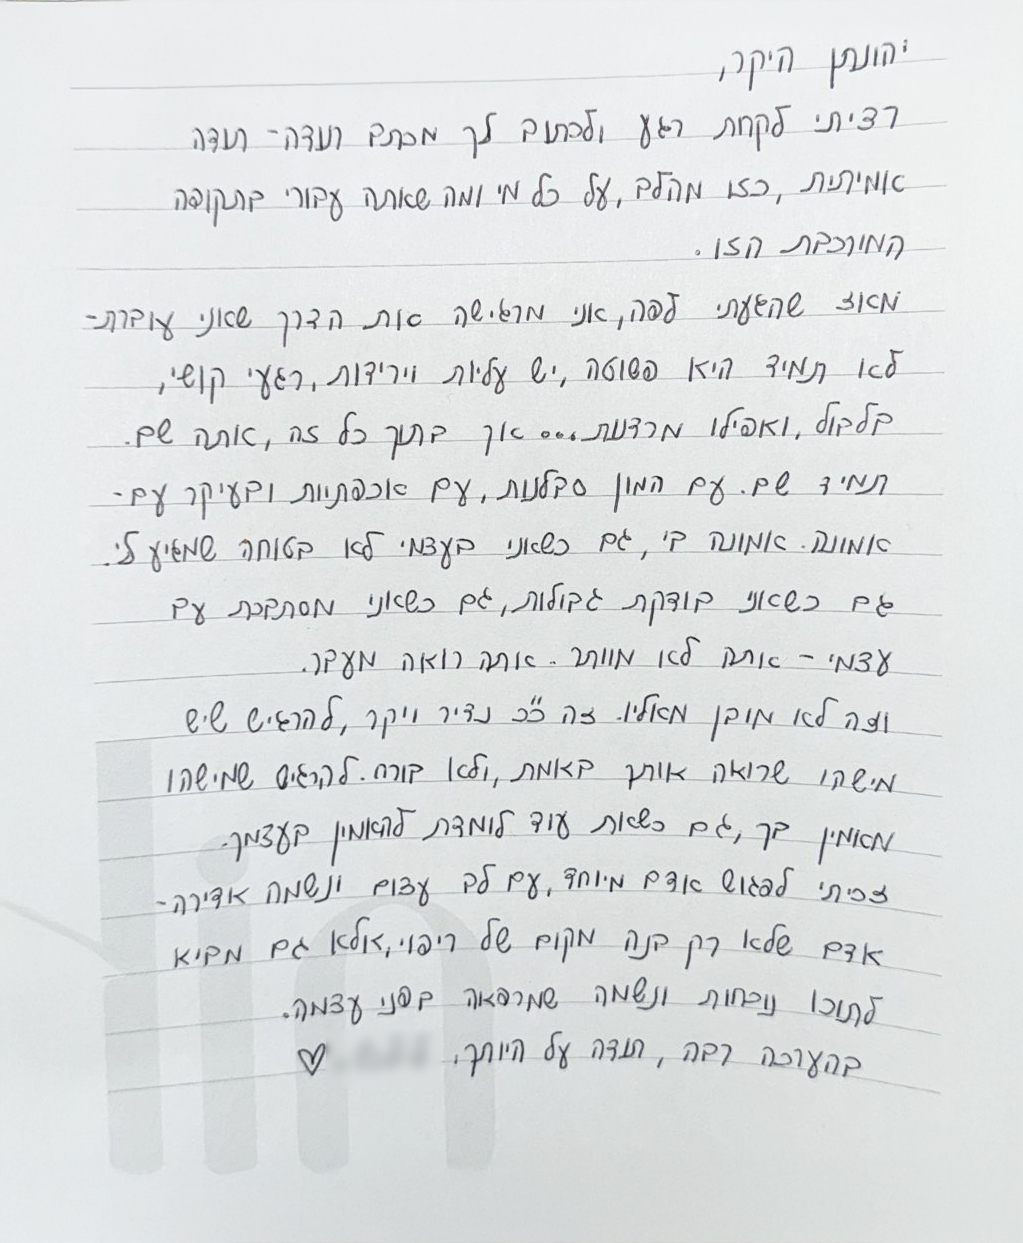 יהונתן היקר,
רציתי לקחת רגע ולכתוב לך מכתב תודה- תודה
אמיתית, כזו מהלב, על כל מי ומה שאתה עבורי בתקופה
המורכבת הזו.
מאז שהגעתי לפה, אני מרגישה את הדרך שאני עוברת-
לא תמיד היא פשוטה, יש עליות וירידות, רגעי קושי,
בלבול, ואפילו מרדנות... אך בתוך כל זה, אתה שם.
תמיד שם. עם המון סבלנות, עם אכפתיות ובעיקר עם-
אמונה. אמונה בי, גם כשאני בעצמי לא בטוחה שמגיע לי.
גם כשאני בודקת גבולות, גם כשאני מסתבכת עם
עצמי - אתה לא מוותר. אתה רואה מעבר.
וזה לא מובן מאליו. זה כ"כ נדיר ויקר, להרגיש שיש
מישהו שרואה אותך באמת, ולא בורח. להרגיש שמישהו
מאמין בך, גם כשאת עוד לומדת להאמין בעצמך.
זכיתי לפגוש אדם מיוחד, עם לב עצום ונשמה אדירה-
אדם שלא רק בנה מקום של ריפוי, אלא גם מביא
לתוכו נוכחות ונשמה שמרפאה בפני עצמה.
בהערכה רבה, תודה על היותך, ♡